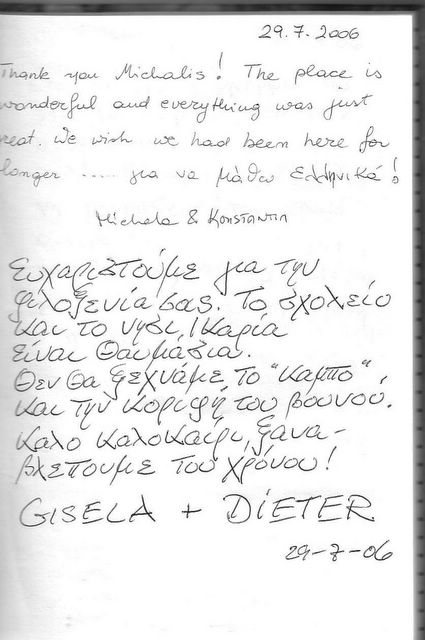 29.7.2006
Thank you Michalis! The place is
wonderful and everything was just
reat. We wish we had been here for
longer ..... για να μάθω Ελληνικά!
Michela & Konstantin
Ευχαριστούμε για την
φιλοξενία σας. Το σχολείο
και το νησί, Ικαρία
είναι θαυμάσια.
Θεν θα ξεχνάμε, το "καμπο"
και την κορυφή του βουνού.
Καλο καλοκαίρι, ξανα-
βλέπουμε του χρόνου!
GISELA + DIETER
29-7-06